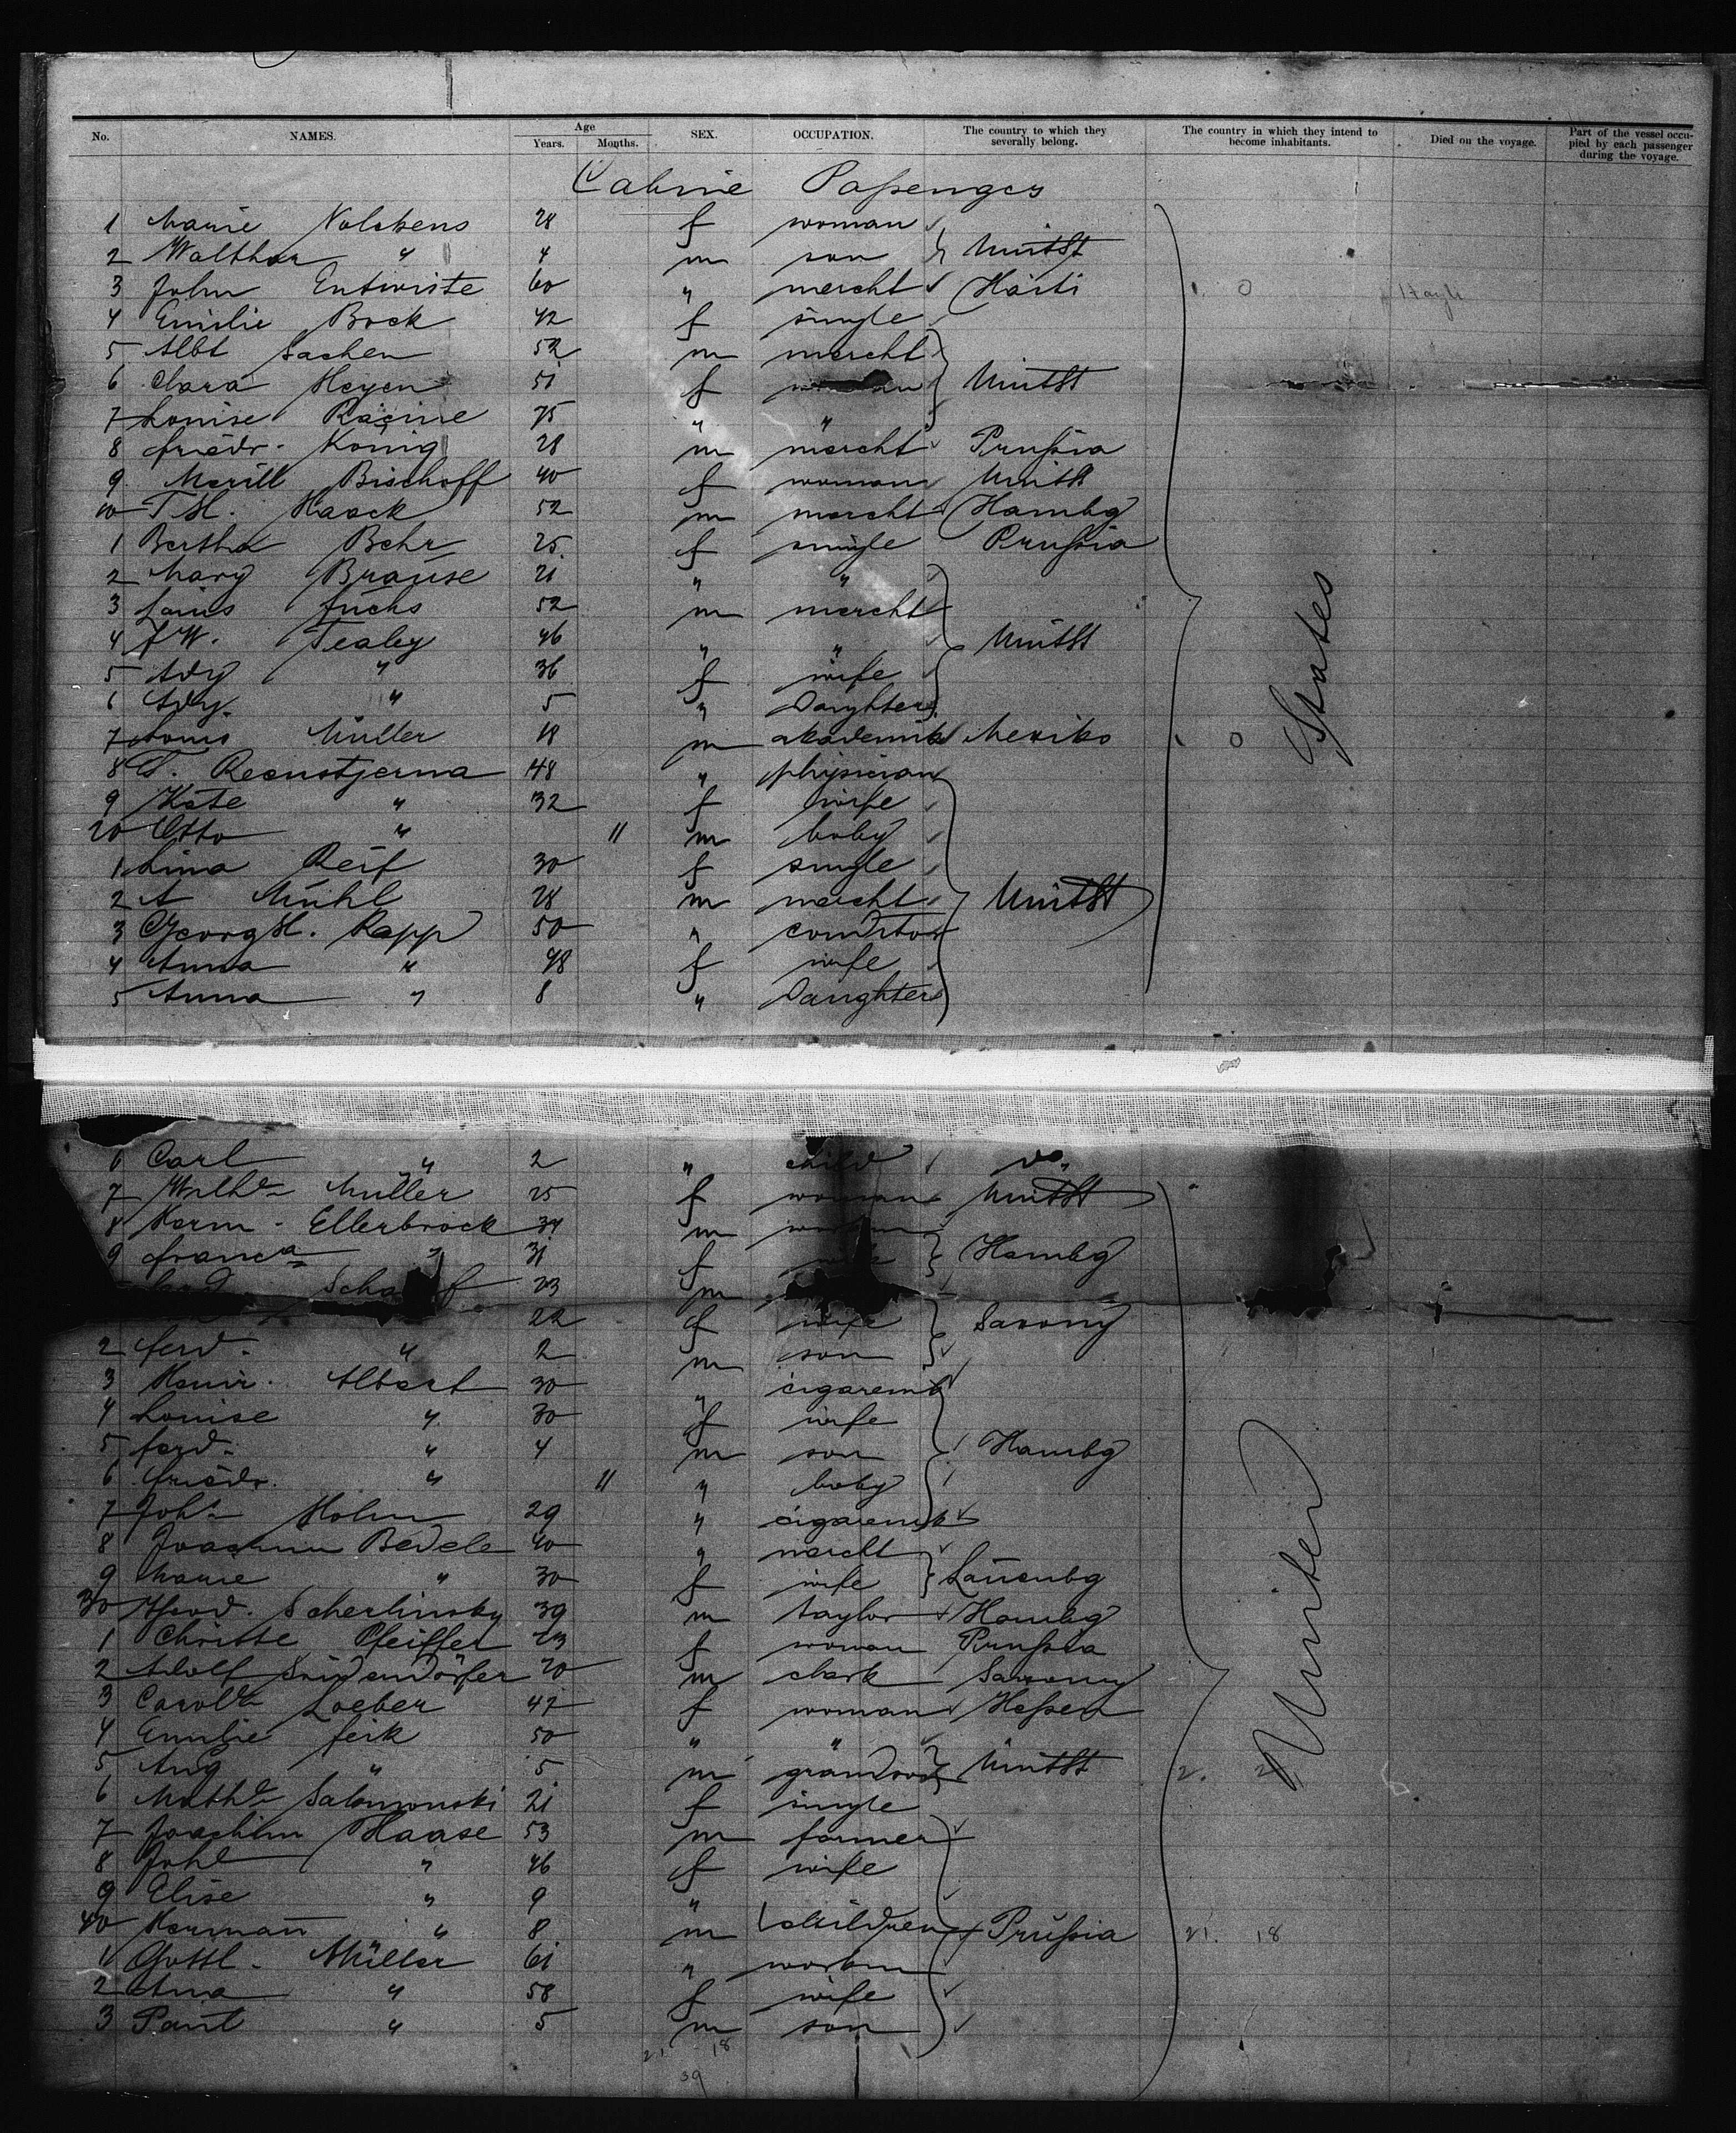 No. NAMES. Age Years. Months. SEX. OCCUPATION. The country to which they severally belong. The country in which they intend to become inhabitants. Died on the voyage. Part of the vessel occupied by each passenger during the voyage.
Cabine Paßenges
1 Marie Nolckens 28 f woman
2 Walther " 4 m son Unit St
3 John Entwiste 60 " mercht Haiti 0 Hayti
4 Emilie Bock 42 f single
5 Albt Sachen 52 m mercht
6 Clara Heyen 51 f woman Unit St
7 Louise Racine 75 " "
8 Friedr. König 28 m mercht Prußia
9 Merill Bischoff 40 f woman Unit St
10 T. H. Haack 52 m mercht Hambg
1 Bertha Behr 25 f single Prußia
2 Mary Brause 21 " "
3 Louis Fuchs 52 m mercht
4 J. W. Tealey 46 " " Unit St
5 Ady " 36 f wife
6 Ady. " 5 " Daughter
7 Louis Müller 18 m akademik Mexiko 0
8 Reenstjerna 48 " physician
9 Kate " 32 f wife
20 Otto " 11 m baby
1 Lina Reif 30 f single
2 A Mühl 28 m mercht Unit St
3 Georg H. Rapp 50 " conditor
4 Anna " 48 f wife
5 Anna " 8 " Daughter
States
6 Carl " 2 " child do
7 Wilhe Müller 25 f woman Unit St
8 Herm. Ellerbrock 34 m workm
9 Franca " 31 f wife Hambg
23 m
22 f wife Saxony
2 Ferd. " 2 m son
3 Heinr. Albert 30 " cigaremk
4 Louise " 30 f wife
5 Ferd. " 4 m son Hambg
6 Friedr. " 11 " baby
7 Joh. Holm 29 " cigaremk
8 Joachim Bedele 40 " mercht
9 Marie " 30 f wife Lauenbg
30 Theod. Scherlinsky 39 m taylor Hambg
1 Christe Pfeiffer 23 f woman Prußia
2 Adolf 20 m clark Saxony
3 Carole Loeber 47 f woman Heßen
4 Emilie Feik 50 " "
5 Aug " 5 m grandson Unit St 2. 2
6 Mathe Salomonski 21 f single
7 Joachim Haase 53 m farmer
8 Johe " 46 f wife
9 Elise " 9 "
40 Hermann " 8 m children Prußia 21. 18
1 Gottl. Müller 61 " workm
2 Ana " 58 f wife
3 Paul " 5 m son
United
21 18
39